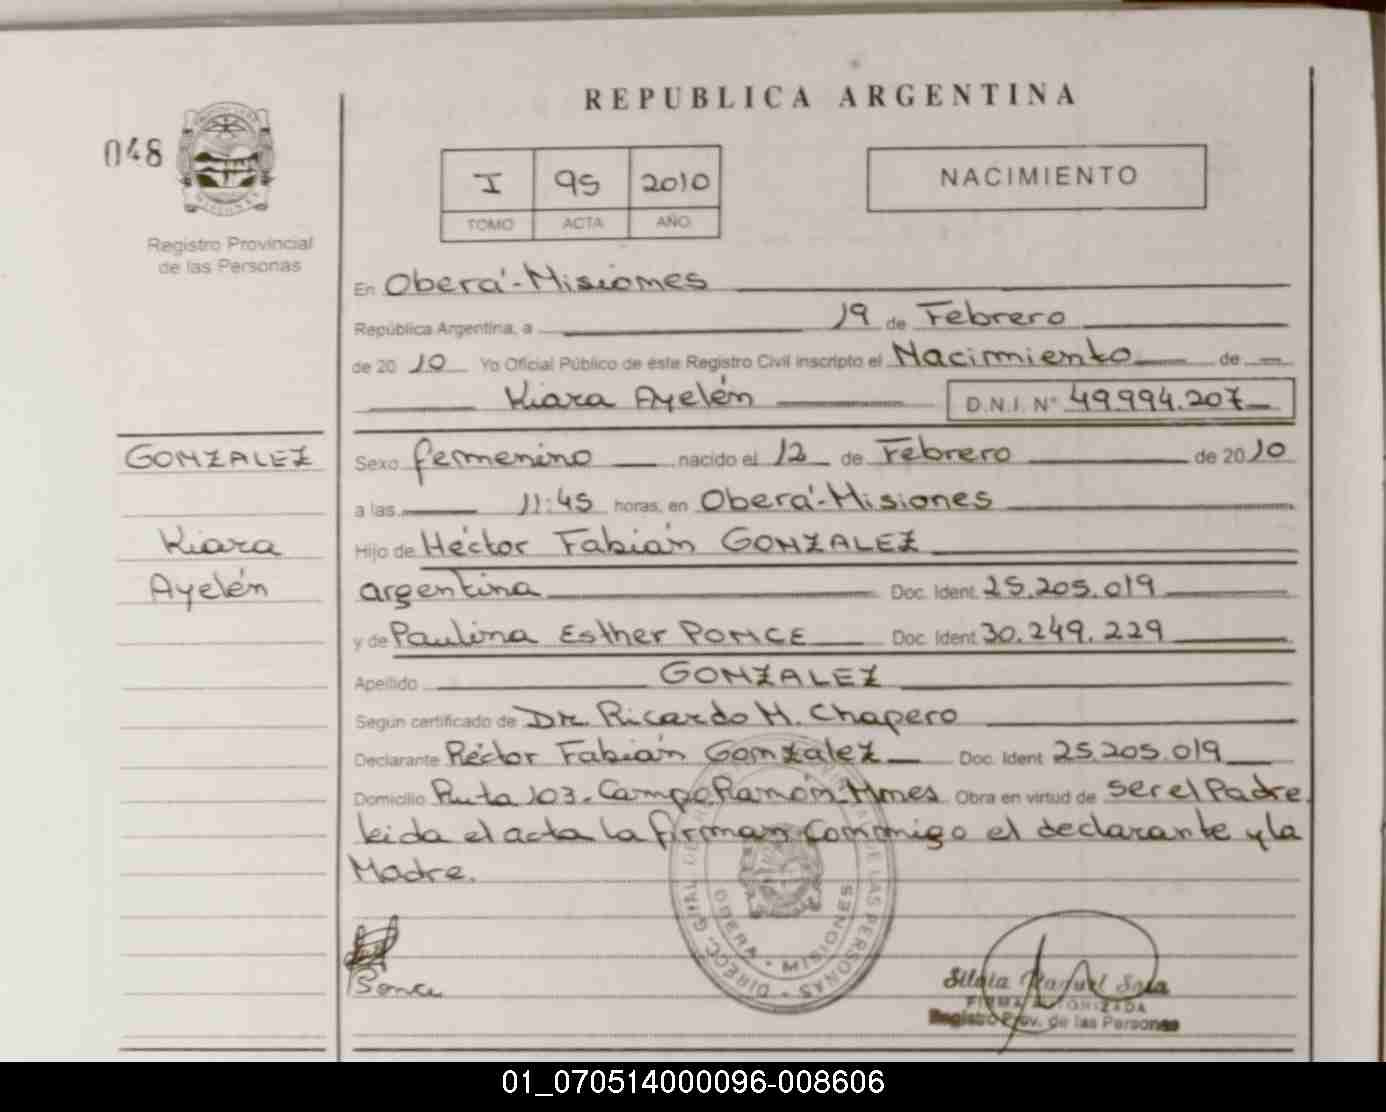 REPUBLICA ARGENTINA
048
PROVINCIA DE MISIONES
Registro Provincial
de las Personas
I 95 2010
TOMO ACTA AÑO
NACIMIENTO
En Oberá-Misiones
República Argentina, a 19 de Febrero
de 2010 Yo Oficial Público de éste Registro Civil inscripto el Nacimiento de
Kiara Ayelén D.N.I. N° 49.994.207
GONZALEZ
Kiara
Ayelén
Sexo femenino nacido el 12 de Febrero de 2010
a las 11:45 horas, en Oberá-Misiones
Hijo de Héctor Fabián GONZALEZ
argentina Doc. Ident. 25.205.019
y de Paulina Esther PONCE Doc. Ident. 30.249.229
Apellido GONZALEZ
Según certificado de Dr. Ricardo H. Chapero
Declarante Héctor Fabián Gonzalez Doc. Ident. 25.205.019
Domicilio Ruta 103. Campo Ramon-Mnes Obra en virtud de ser el Padre
leida el acta la firman conmigo el declarante y la
Madre.
DIRECC. GRAL. DE REG. DE LAS PERSONAS
OBERA - MISIONES
Silvia Raquel Sosa
FIRMA AUTORIZADA
Registro Prov. de las Personas
01_070514000096-008606